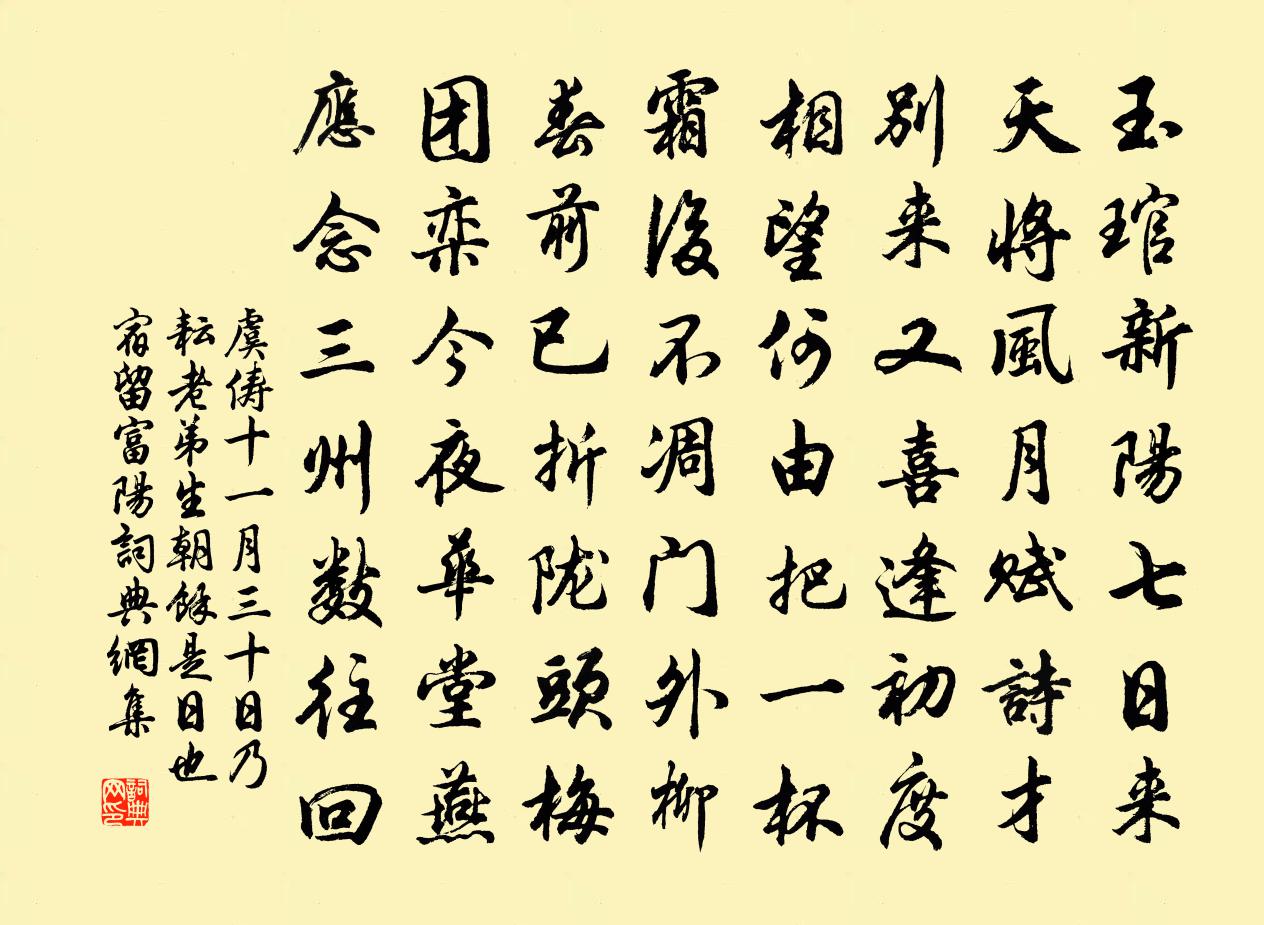 玉琯新陽七日来
天將風月賦詩才
别来又喜逢初度
相望何由把一杯
霜後不凋门外柳
春前已折陇頭梅
团栾今夜華堂燕
應念三州数往回
虞俦十一月三十日乃
耘老弟生朝餘是日也
宿留富陽詞典網集
詞典
网印